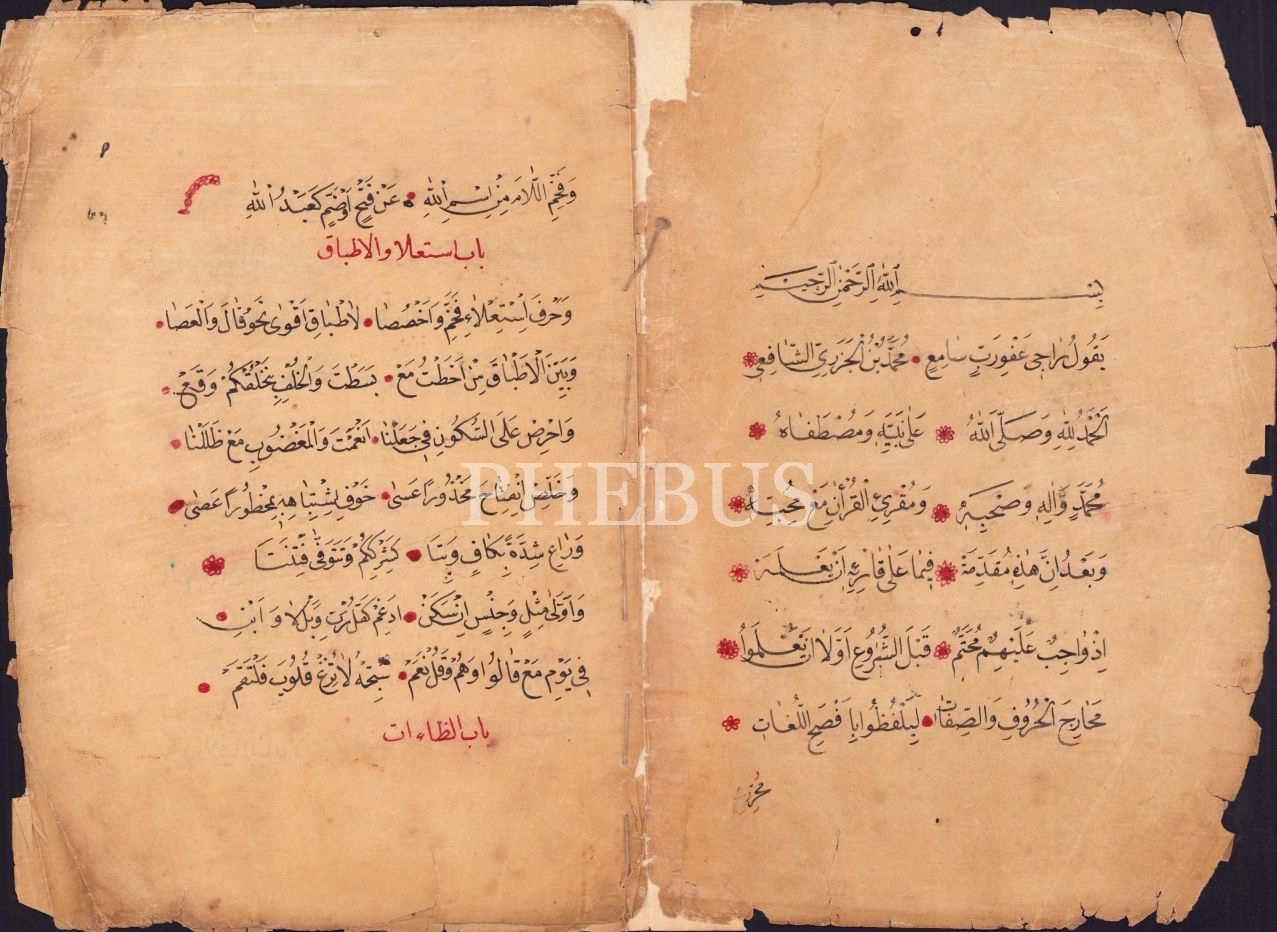 بِسْمِ اللهِ الرَّحْمٰنِ الرَّحِيمِ
يَقُولُ رَاجِي عَفْوِ رَبٍّ سَامِعٍ مُحَمَّدُ بْنُ الْجَزَرِيِّ الشَّافِعِي
اَلْحَمْدُ لِلّٰهِ وَصَلَّى اللهُ عَلٰى نَبِيِّهِ وَمُصْطَفَاهُ
مُحَمَّدٍ وَاٰلِهِ وَصَحْبِهِ وَمُقْرِئِ الْقُرْاٰنِ مَعْ مُحِبِّهِ
وَبَعْدُ اِنَّ هٰذِهِ مُقَدِّمَةْ فِيمَا عَلٰى قَارِئِهِ اَنْ يَعْلَمَهْ
اِذْ وَاجِبٌ عَلَيْهِمُ مُحَتَّمٌ قَبْلَ الشُّرُوعِ اَوَّلًا اَنْ يَعْلَمُوا
مَخَارِجَ الْحُرُوفِ وَالصِّفَاتِ لِيَلْفُظُوا بِاَفْصَحِ اللُّغَاتِ
وَفَخِّمِ اللَّامَ مِنْ اسْمِ اللهِ عَنْ فَتْحٍ اَوْ ضَمٍّ كَعَبْدُ اللهِ
باب استعلا والاطباق
وَحَرْفَ اِسْتِعْلَاءٍ فَخِّمْ وَاخْصُصَا لَاطْبَاقِ اَقْوٰى نَحْوُ قَالَ وَالْعَصَا
وَبَيِّنِ الْاَطْبَاقَ مِنْ اَحَطْتُ مَعْ بَسَطْتَ وَالْخُلْفُ بِنَخْلُقْكُمْ وَقَعْ
وَاحْرِصْ عَلَى السُّكُونِ فِي جَعَلْنَا اَنْعَمْتَ وَالْمَغْضُوبِ مَعْ ظَلَلْنَا
وَخَلِّصْ اِنْفِتَاحَ مَحْذُورًا عَسٰى خَوْفِ شْتِبَاهِهِ بِمَحْظُورًا عَصٰى
وَرَاعِ شِدَّةً بِكَافٍ وَبِتَا كَشِرْكِكُمْ وَتَتَوَفّٰى فِتْنَتَا
وَاَوَّلَىْ مِثْلٍ وَجِنْسٍ اِنْ سَكَنْ اَدْغِمْ كَقُلْ رَبِّ وَبَلْ لَا وَاَبِنْ
فِي يَوْمِ مَعْ قَالُوا وَهُمْ وَقُلْ نَعَمْ سَبِّحْهُ لَا تُزِغْ قُلُوبَ فَلْتَقَمْ
باب الظاءات
PHEBUS